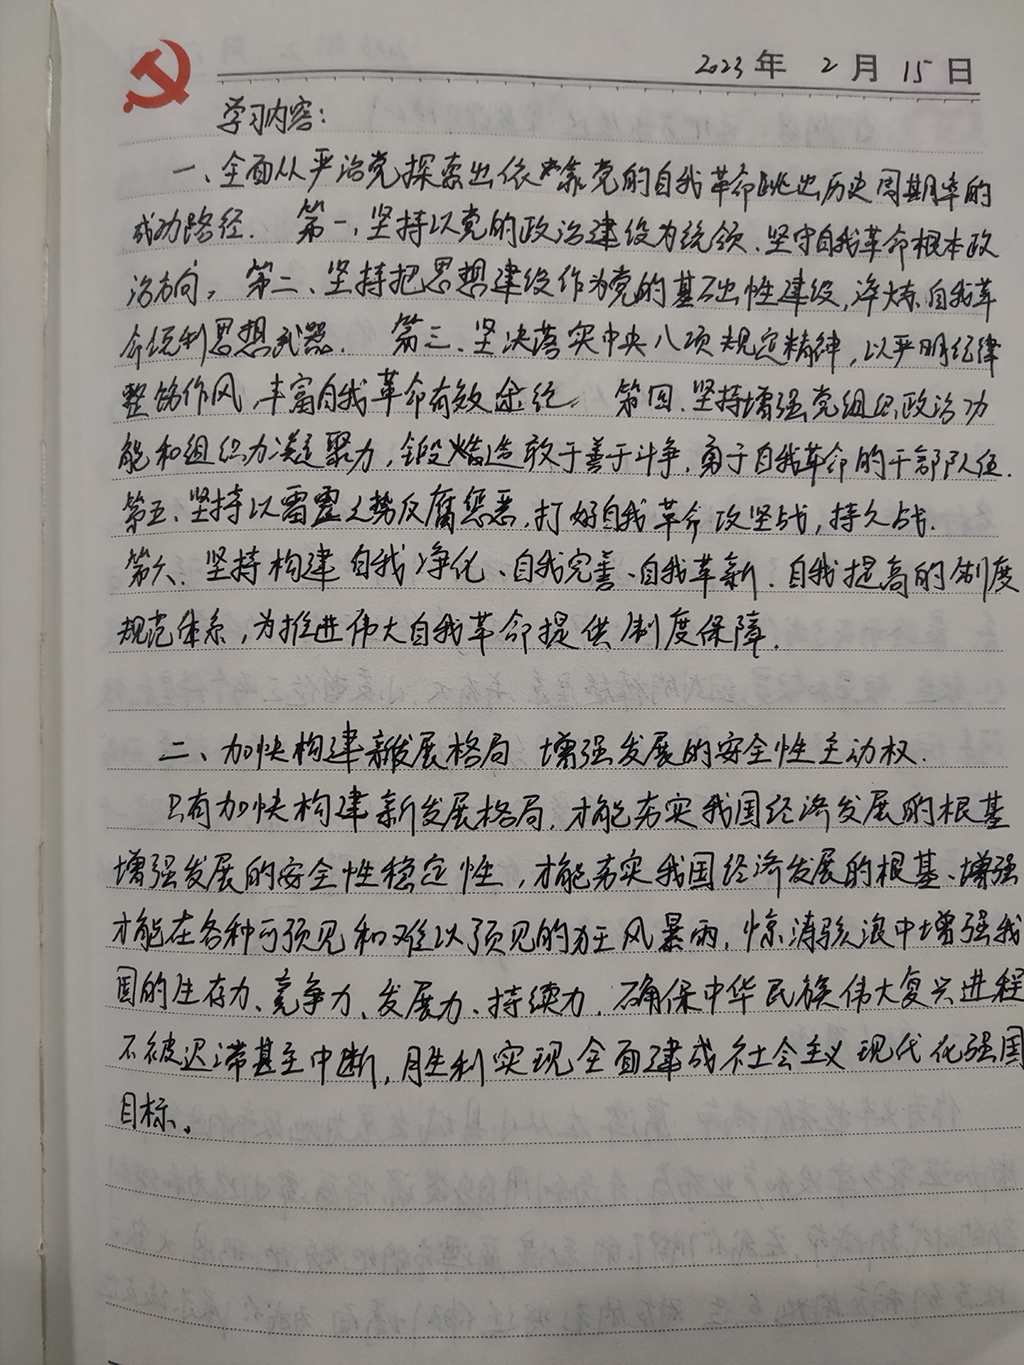 2023年 2月 15日
学习内容：
一、全面从严治党探索出依靠党的自我革命跳出历史周期率的
成功路径. 第一、坚持以党的政治建设为统领、坚守自我革命根本政
治方向。第二、坚持把思想建设作为党的基础性建设，淬炼自我革
命锐利思想武器. 第三、坚决落实中央八项规定精神，以严明纪律
整饬作风，丰富自我革命有效途径。第四、坚持增强党组织政治功
能和组织力凝聚力，锻造敢于善于斗争，勇于自我革命的干部队伍.
第五、坚持以雷霆之势反腐惩恶，打好自我革命攻坚战，持久战.
第六、坚持构建自我净化、自我完善、自我革新、自我提高的制度
规范体系，为推进伟大自我革命提供制度保障.
二、加快构建新发展格局 增强发展的安全性主动权.
只有加快构建新发展格局，才能夯实我国经济发展的根基
增强发展的安全性稳定性，才能夯实我国经济发展的根基、增强
才能在各种可预见和难以预见的狂风暴雨，惊涛骇浪中增强我
国的生存力、竞争力、发展力、持续力，确保中华民族伟大复兴进程
不被迟滞甚至中断，胜利实现全面建成社会主义现代化强国
目标。